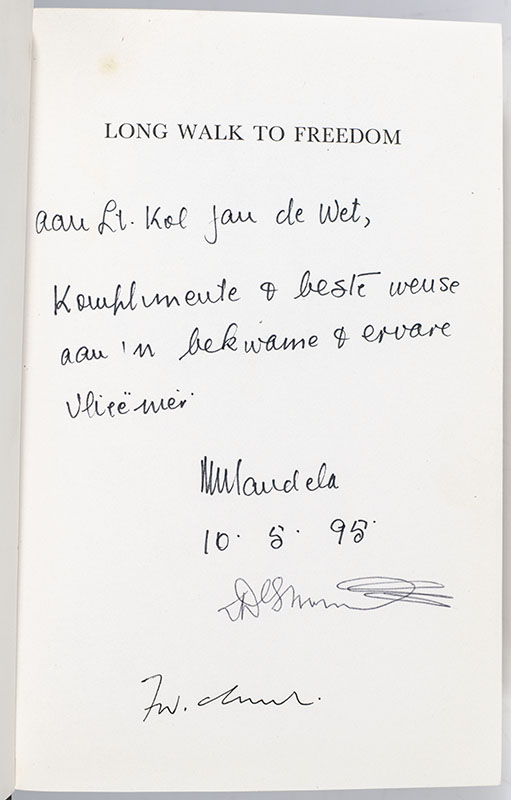 LONG WALK TO FREEDOM
aan Lt. Kol Jan de Wet,
Komplimente & beste wense
aan 'n bekwame & ervare
vlieënier
NMandela
10. 5. 95.
F.W. de